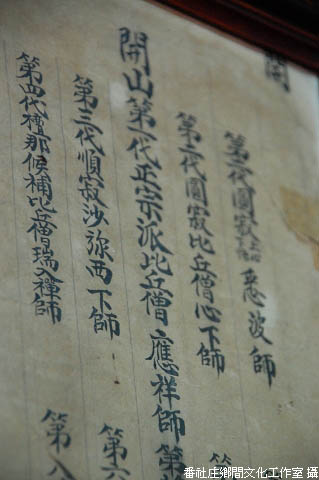 開
代圓寂上悪波師
第二代圓寂比丘僧心下師
開山第一代正宗派比丘僧應祥師
第三代順寂沙弥西下師
第四代檀那候補比丘僧瑞入禪師
第
第
第六
第八
番社庄鄉間文化工作室 攝